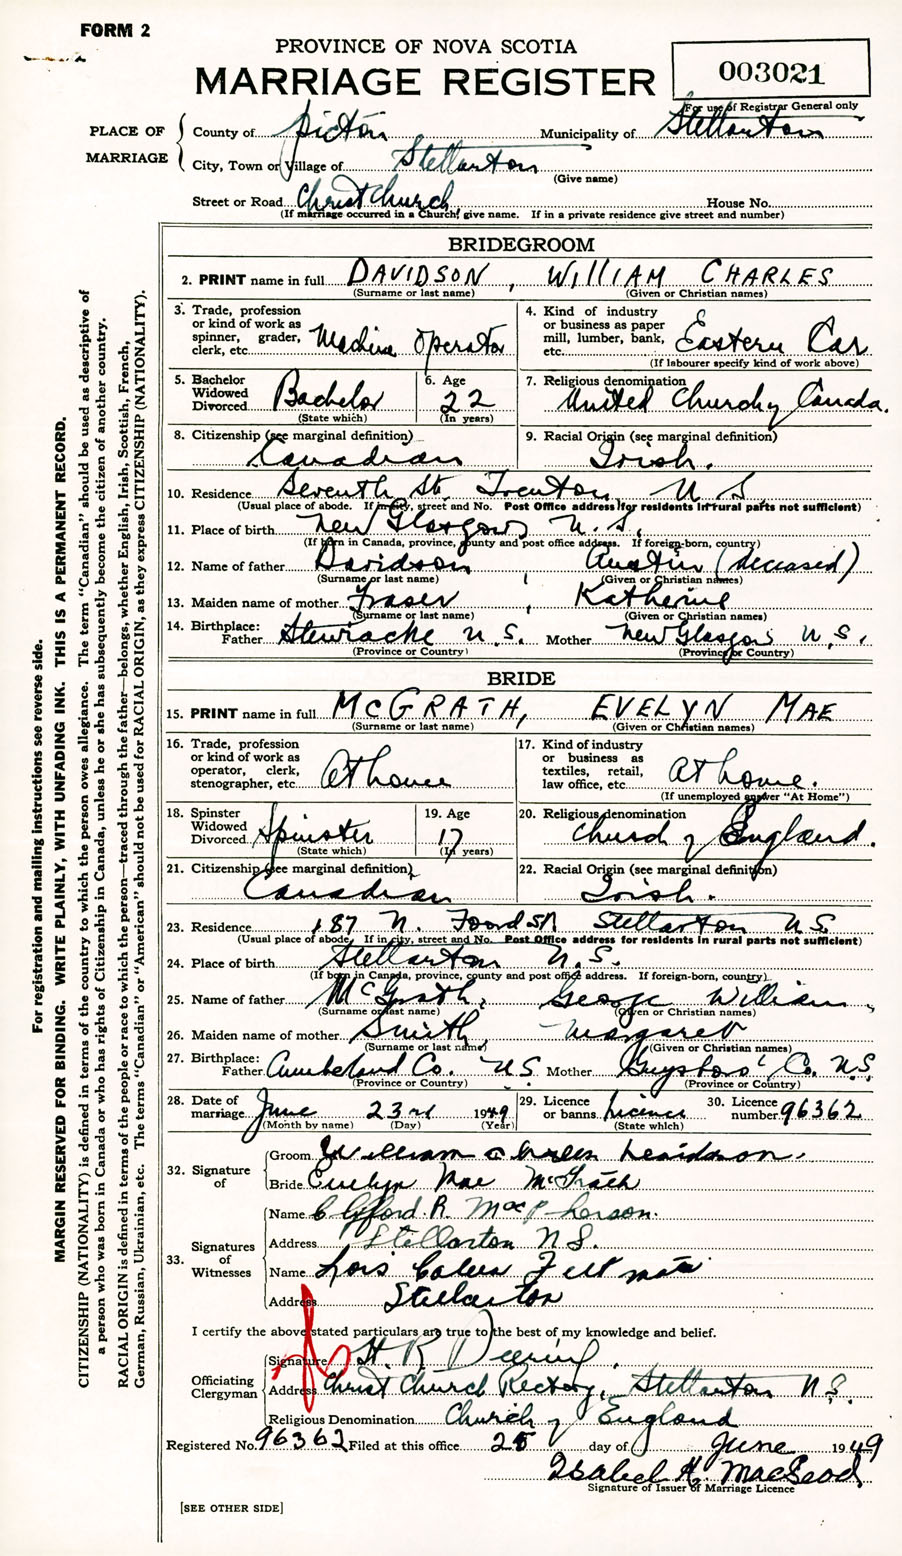 FORM 2
PROVINCE OF NOVA SCOTIA
MARRIAGE REGISTER
003021
For use of Registrar General only
PLACE OF MARRIAGE
County of Pictou Municipality of Stellarton
City, Town or Village of Stellarton
(Give name)
Street or Road Christ Church House No.
(If marriage occurred in a Church, give name. If in a private residence give street and number)
BRIDEGROOM
2. PRINT name in full DAVIDSON, WILLIAM CHARLES
(Surname or last name) (Given or Christian names)
3. Trade, profession or kind of work as spinner, grader, clerk, etc. Machine Operator
4. Kind of industry or business as paper mill, lumber, bank, etc. Eastern Car
(If labourer specify kind of work above)
5. Bachelor Widowed Divorced Bachelor
(State which)
6. Age 22
(In years)
7. Religious denomination United Church of Canada.
8. Citizenship (see marginal definition) Canadian
9. Racial Origin (see marginal definition) Irish.
10. Residence Seventh St. Trenton N S
(Usual place of abode. If in city, street and No. Post Office address for residents in rural parts not sufficient)
11. Place of birth New Glasgow N.S.
(If born in Canada, province, county and post office address. If foreign-born, country)
12. Name of father Davidson, Austin (deceased)
(Surname or last name) (Given or Christian names)
13. Maiden name of mother Fraser, Katherine
(Surname or last name) (Given or Christian names)
14. Birthplace: Father Stewiacke N.S. Mother New Glasgow N.S.
(Province or Country) (Province or Country)
BRIDE
15. PRINT name in full McGRATH, EVELYN MAE
(Surname or last name) (Given or Christian names)
16. Trade, profession or kind of work as operator, clerk, stenographer, etc. At home
17. Kind of industry or business as textiles, retail, law office, etc. At home.
(If unemployed answer "At Home")
18. Spinster Widowed Divorced Spinster
(State which)
19. Age 17
(In years)
20. Religious denomination Church of England.
21. Citizenship (see marginal definition) Canadian
22. Racial Origin (see marginal definition) Irish.
23. Residence 187 N. Foord St Stellarton N.S.
(Usual place of abode. If in city, street and No. Post Office address for residents in rural parts not sufficient)
24. Place of birth Stellarton N.S.
(If born in Canada, province, county and post office address. If foreign-born, country)
25. Name of father McGrath, George William
(Surname or last name) (Given or Christian names)
26. Maiden name of mother Smith Margaret
(Surname or last name) (Given or Christian names)
27. Birthplace: Father Cumberland Co. N.S. Mother Guysboro' Co. N.S
(Province or Country) (Province or Country)
28. Date of marriage June 23rd 1949
(Month by name) (Day) (Year)
29. Licence or banns Licence
(State which)
30. Licence number 96362
32. Signature of
Groom William Charles Davidson.
Bride Evelyn Mae McGrath
33. Signatures of Witnesses
Name Clifford R. MacPherson.
Address Stellarton N.S.
Name Lois
Address Stellarton
I certify the above stated particulars are true to the best of my knowledge and belief.
Officiating Clergyman
Signature H. R. Deering.
Address Christ Church Rectory, Stellarton N.S.
Religious Denomination Church of England
Registered No. 96362 Filed at this office 25 day of June 1949
Isabel H. MacLeod
Signature of Issuer of Marriage Licence
[SEE OTHER SIDE]
For registration and mailing instructions see reverse side.
MARGIN RESERVED FOR BINDING. WRITE PLAINLY, WITH UNFADING INK. THIS IS A PERMANENT RECORD.
CITIZENSHIP (NATIONALITY) is defined in terms of the country to which the person owes allegiance. The term "Canadian" should be used as descriptive of
a person who was born in Canada or who has rights of Citizenship in Canada, unless he or she has subsequently become the citizen of another country.
RACIAL ORIGIN is defined in terms of the people or race to which the person—traced through the father—belongs, whether English, Irish, Scottish, French,
German, Russian, Ukrainian, etc. The terms "Canadian" or "American" should not be used for RACIAL ORIGIN, as they express CITIZENSHIP (NATIONALITY).